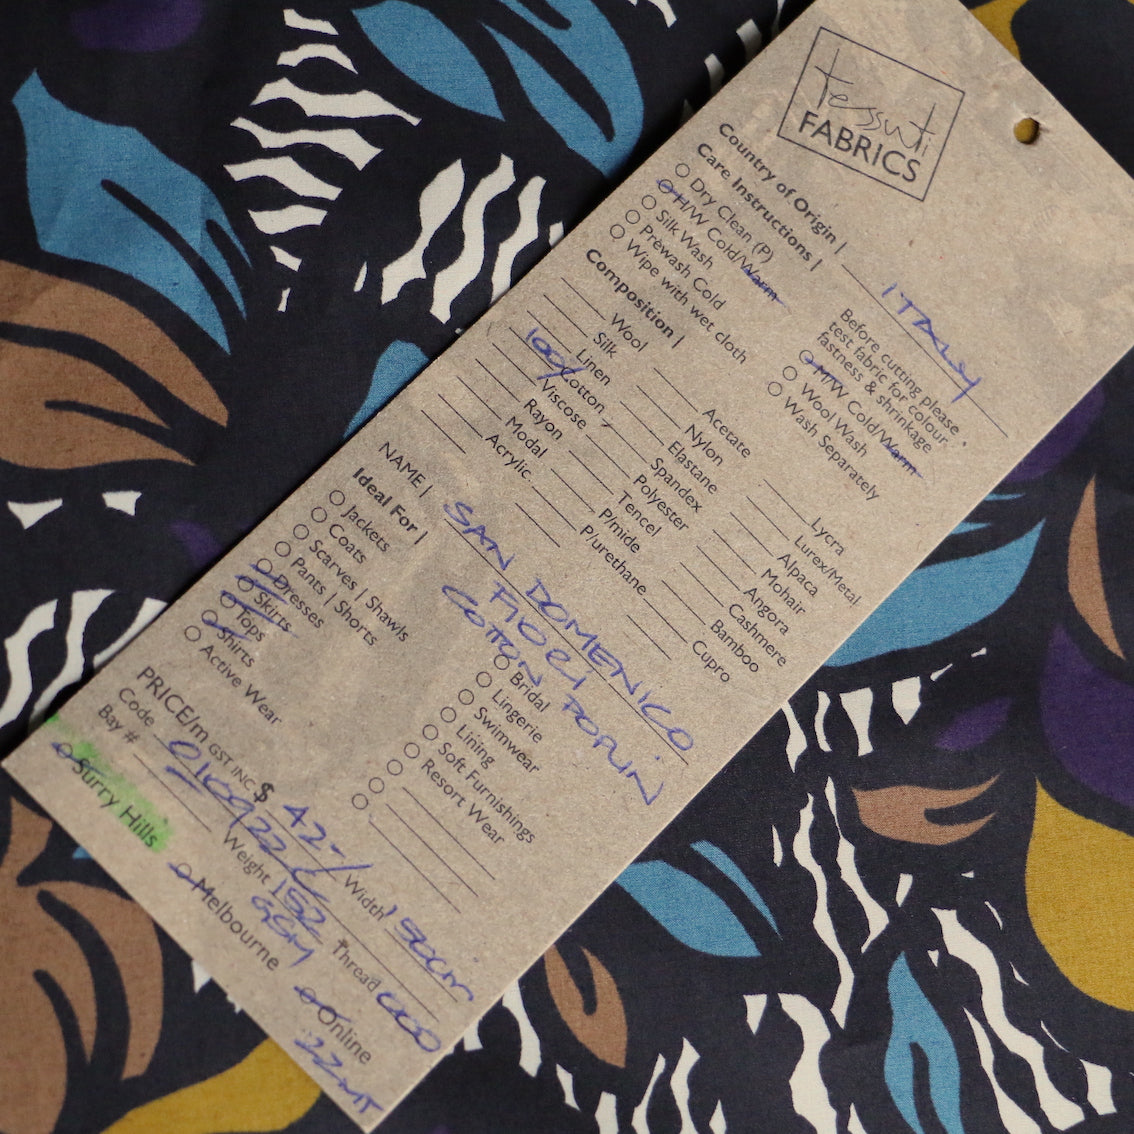 tessuti
FABRICS
Country of Origin | ITALY
Care Instructions |
Dry Clean (P)
H/W Cold/Warm
Silk Wash
Prewash Cold
Wipe with wet cloth
Before cutting please
test fabric for colour
fastness & shrinkage
M/W Cold/Warm
Wool Wash
Wash Separately
Composition |
Wool
Silk
Linen
100% Cotton
Viscose
Rayon
Modal
Acrylic
Acetate
Nylon
Elastane
Spandex
Polyester
Tencel
P/mide
P/urethane
Lycra
Lurex/Metal
Alpaca
Mohair
Angora
Cashmere
Bamboo
Cupro
NAME | SAN DOMENICO
FIORI
COTTON POPLIN
Ideal For |
Jackets
Coats
Scarves | Shawls
Pants | Shorts
Dresses
Skirts
Tops
Shirts
Active Wear
Bridal
Lingerie
Swimwear
Lining
Soft Furnishings
Resort Wear
PRICE/m GST INC $ 42-/ Width 150cm
Code Weight 152 GSM Thread
Bay #
Surry Hills
Melbourne
Online